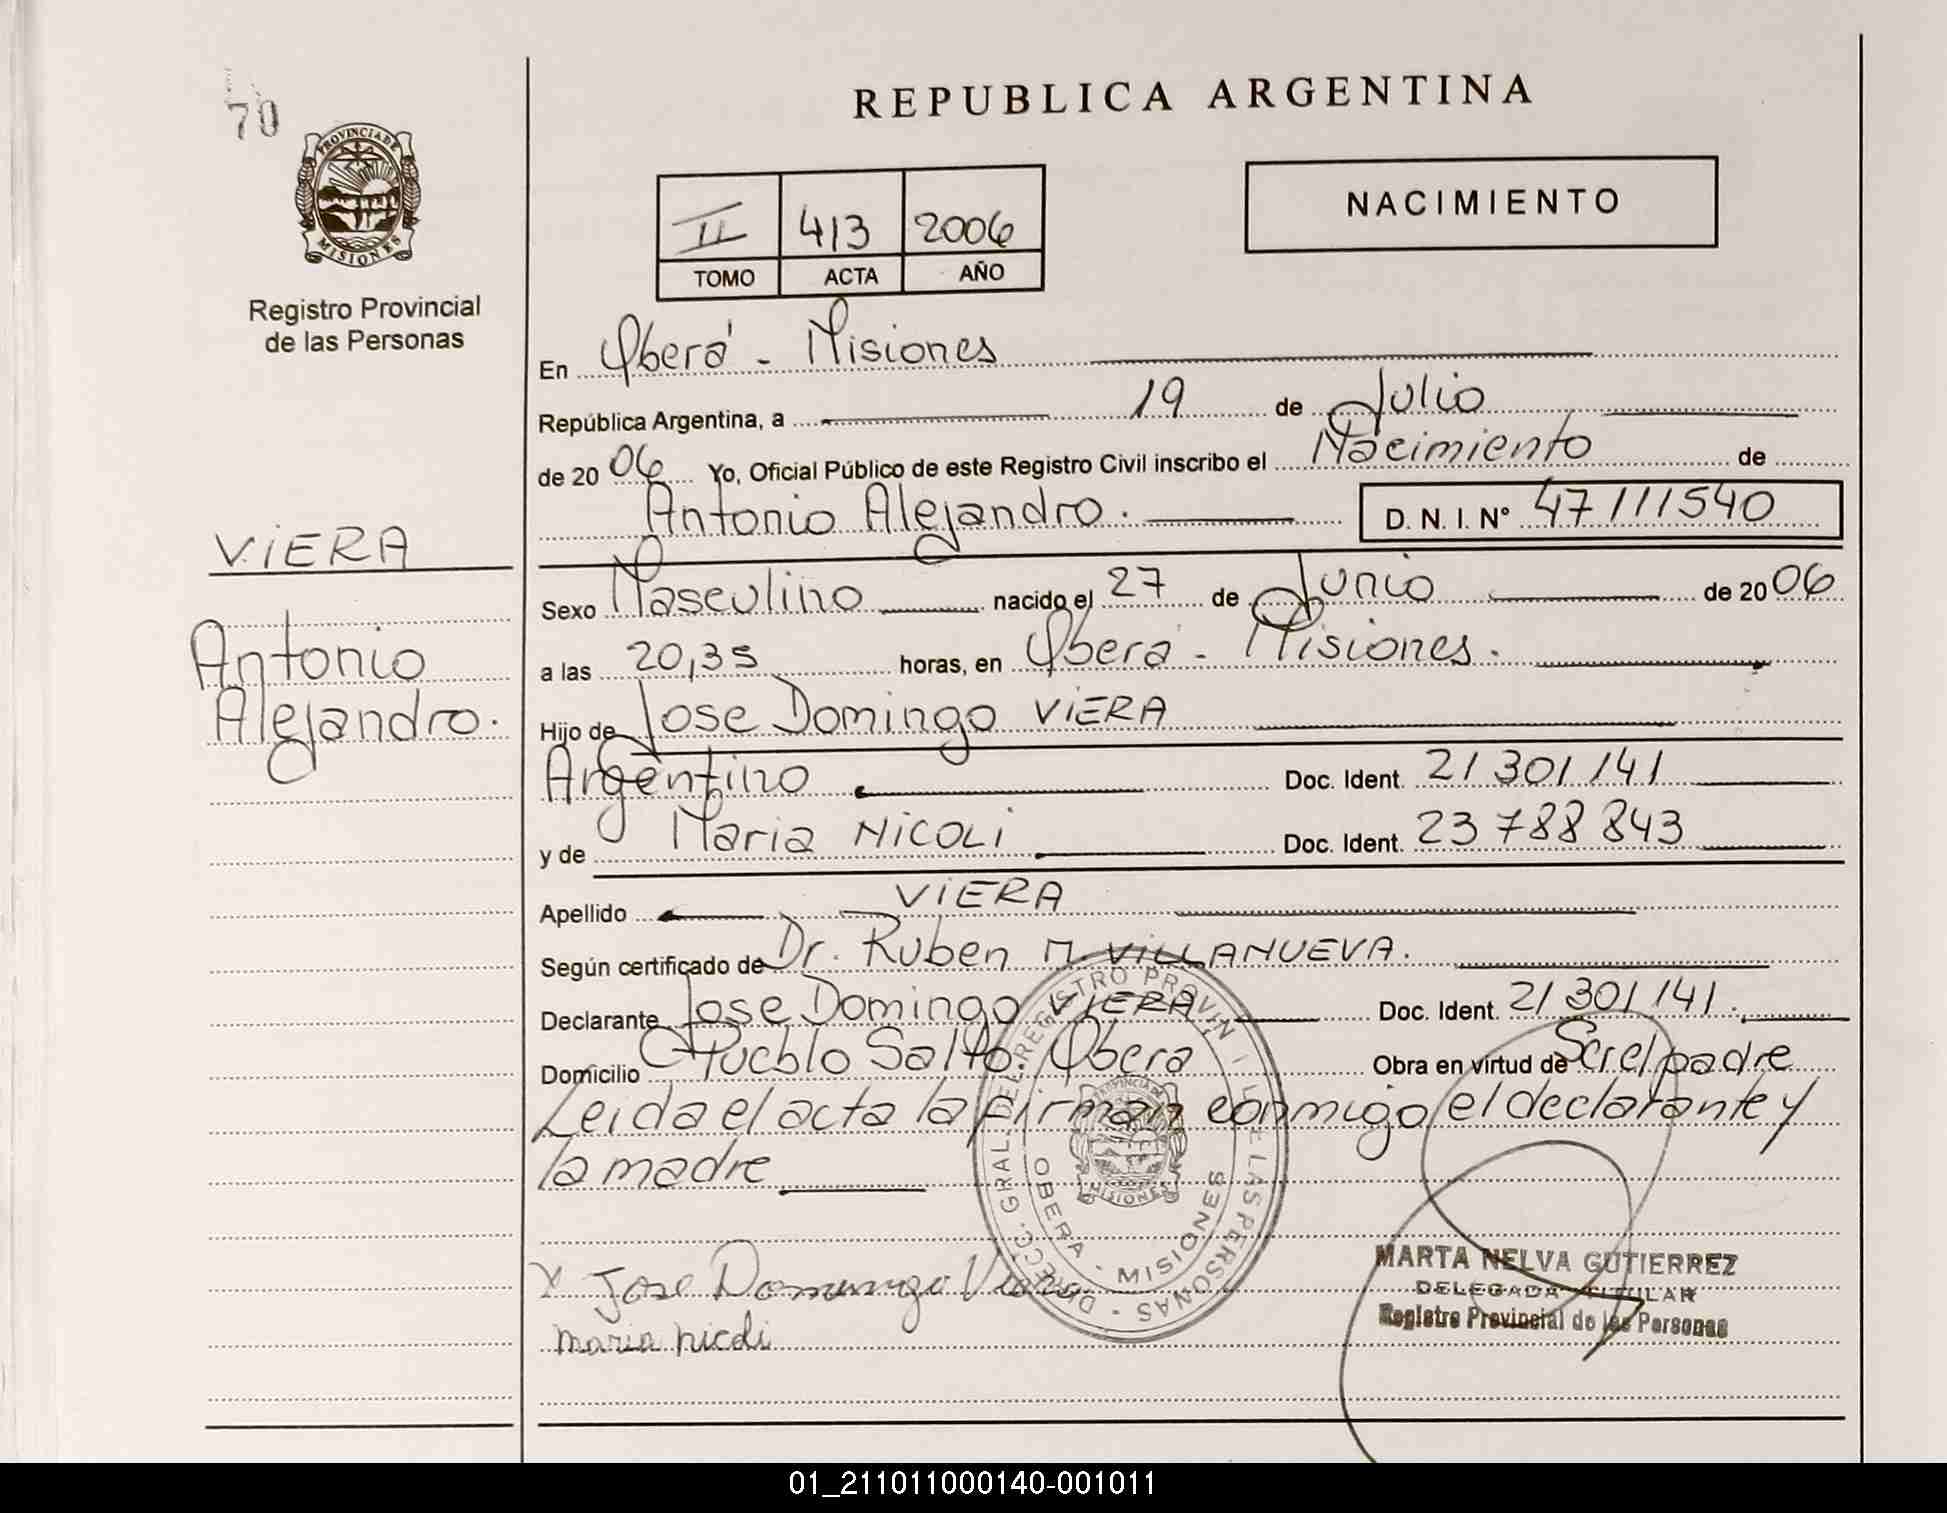 70
PROVINCIA DE
MISIONES
Registro Provincial
de las Personas
VIERA
Antonio
Alejandro.
REPUBLICA ARGENTINA
II 413 2006
TOMO ACTA AÑO
NACIMIENTO
En Oberá - Misiones
República Argentina, a 19 de Julio
de 2006 Yo, Oficial Público de este Registro Civil inscribo el Nacimiento de
Antonio Alejandro. D. N. I. Nº 47111540
Sexo Masculino nacido el 27 de Junio de 2006
a las 20,35 horas, en Oberá - Misiones.
Hijo de Jose Domingo VIERA
Argentino Doc. Ident. 21301141
y de Maria NICOLI Doc. Ident. 23788843
Apellido VIERA
Según certificado de Dr. Ruben M. VILLANUEVA.
Declarante Jose Domingo VIERA Doc. Ident. 21301141.
Domicilio Pueblo Salto. Obera Obra en virtud de padre
Leida el acta la firman conmigo el declarante y
la madre
DIRECC. GRAL. DEL REGISTRO PROVIN LAS PERSONAS
OBERA - MISIONES
PROVINCIA DE
MISIONES
x Jose Domingo Viera
maria nicoli
MARTA NELVA GUTIERREZ
DELEGADA TITULAR
Registro Provincial de las Personas
01_211011000140-001011